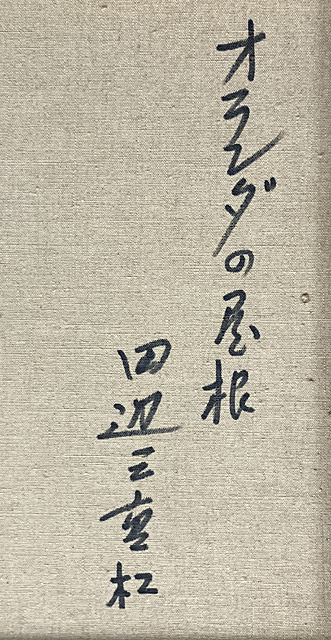 オランダの屋根
田辺三重松